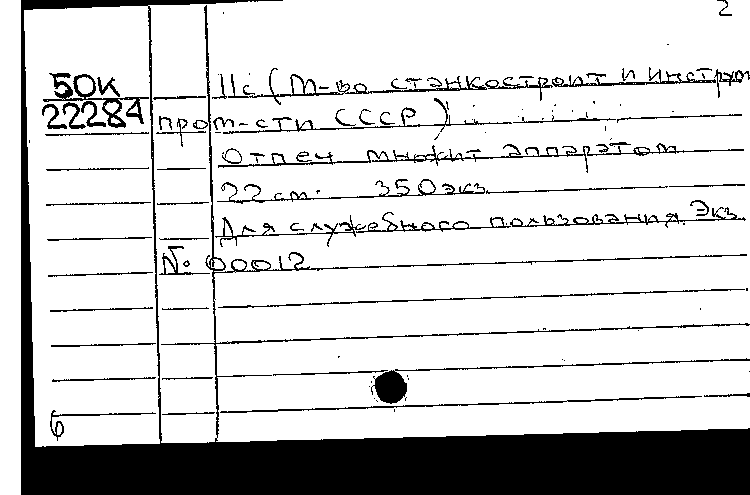 2
50К
22284
11с (М-во станкостроит и инструм
пром-сти СССР)
Отпеч множит аппаратом
22 см. 350 экз
Для служебного пользования. Экз.
№ 00012
6